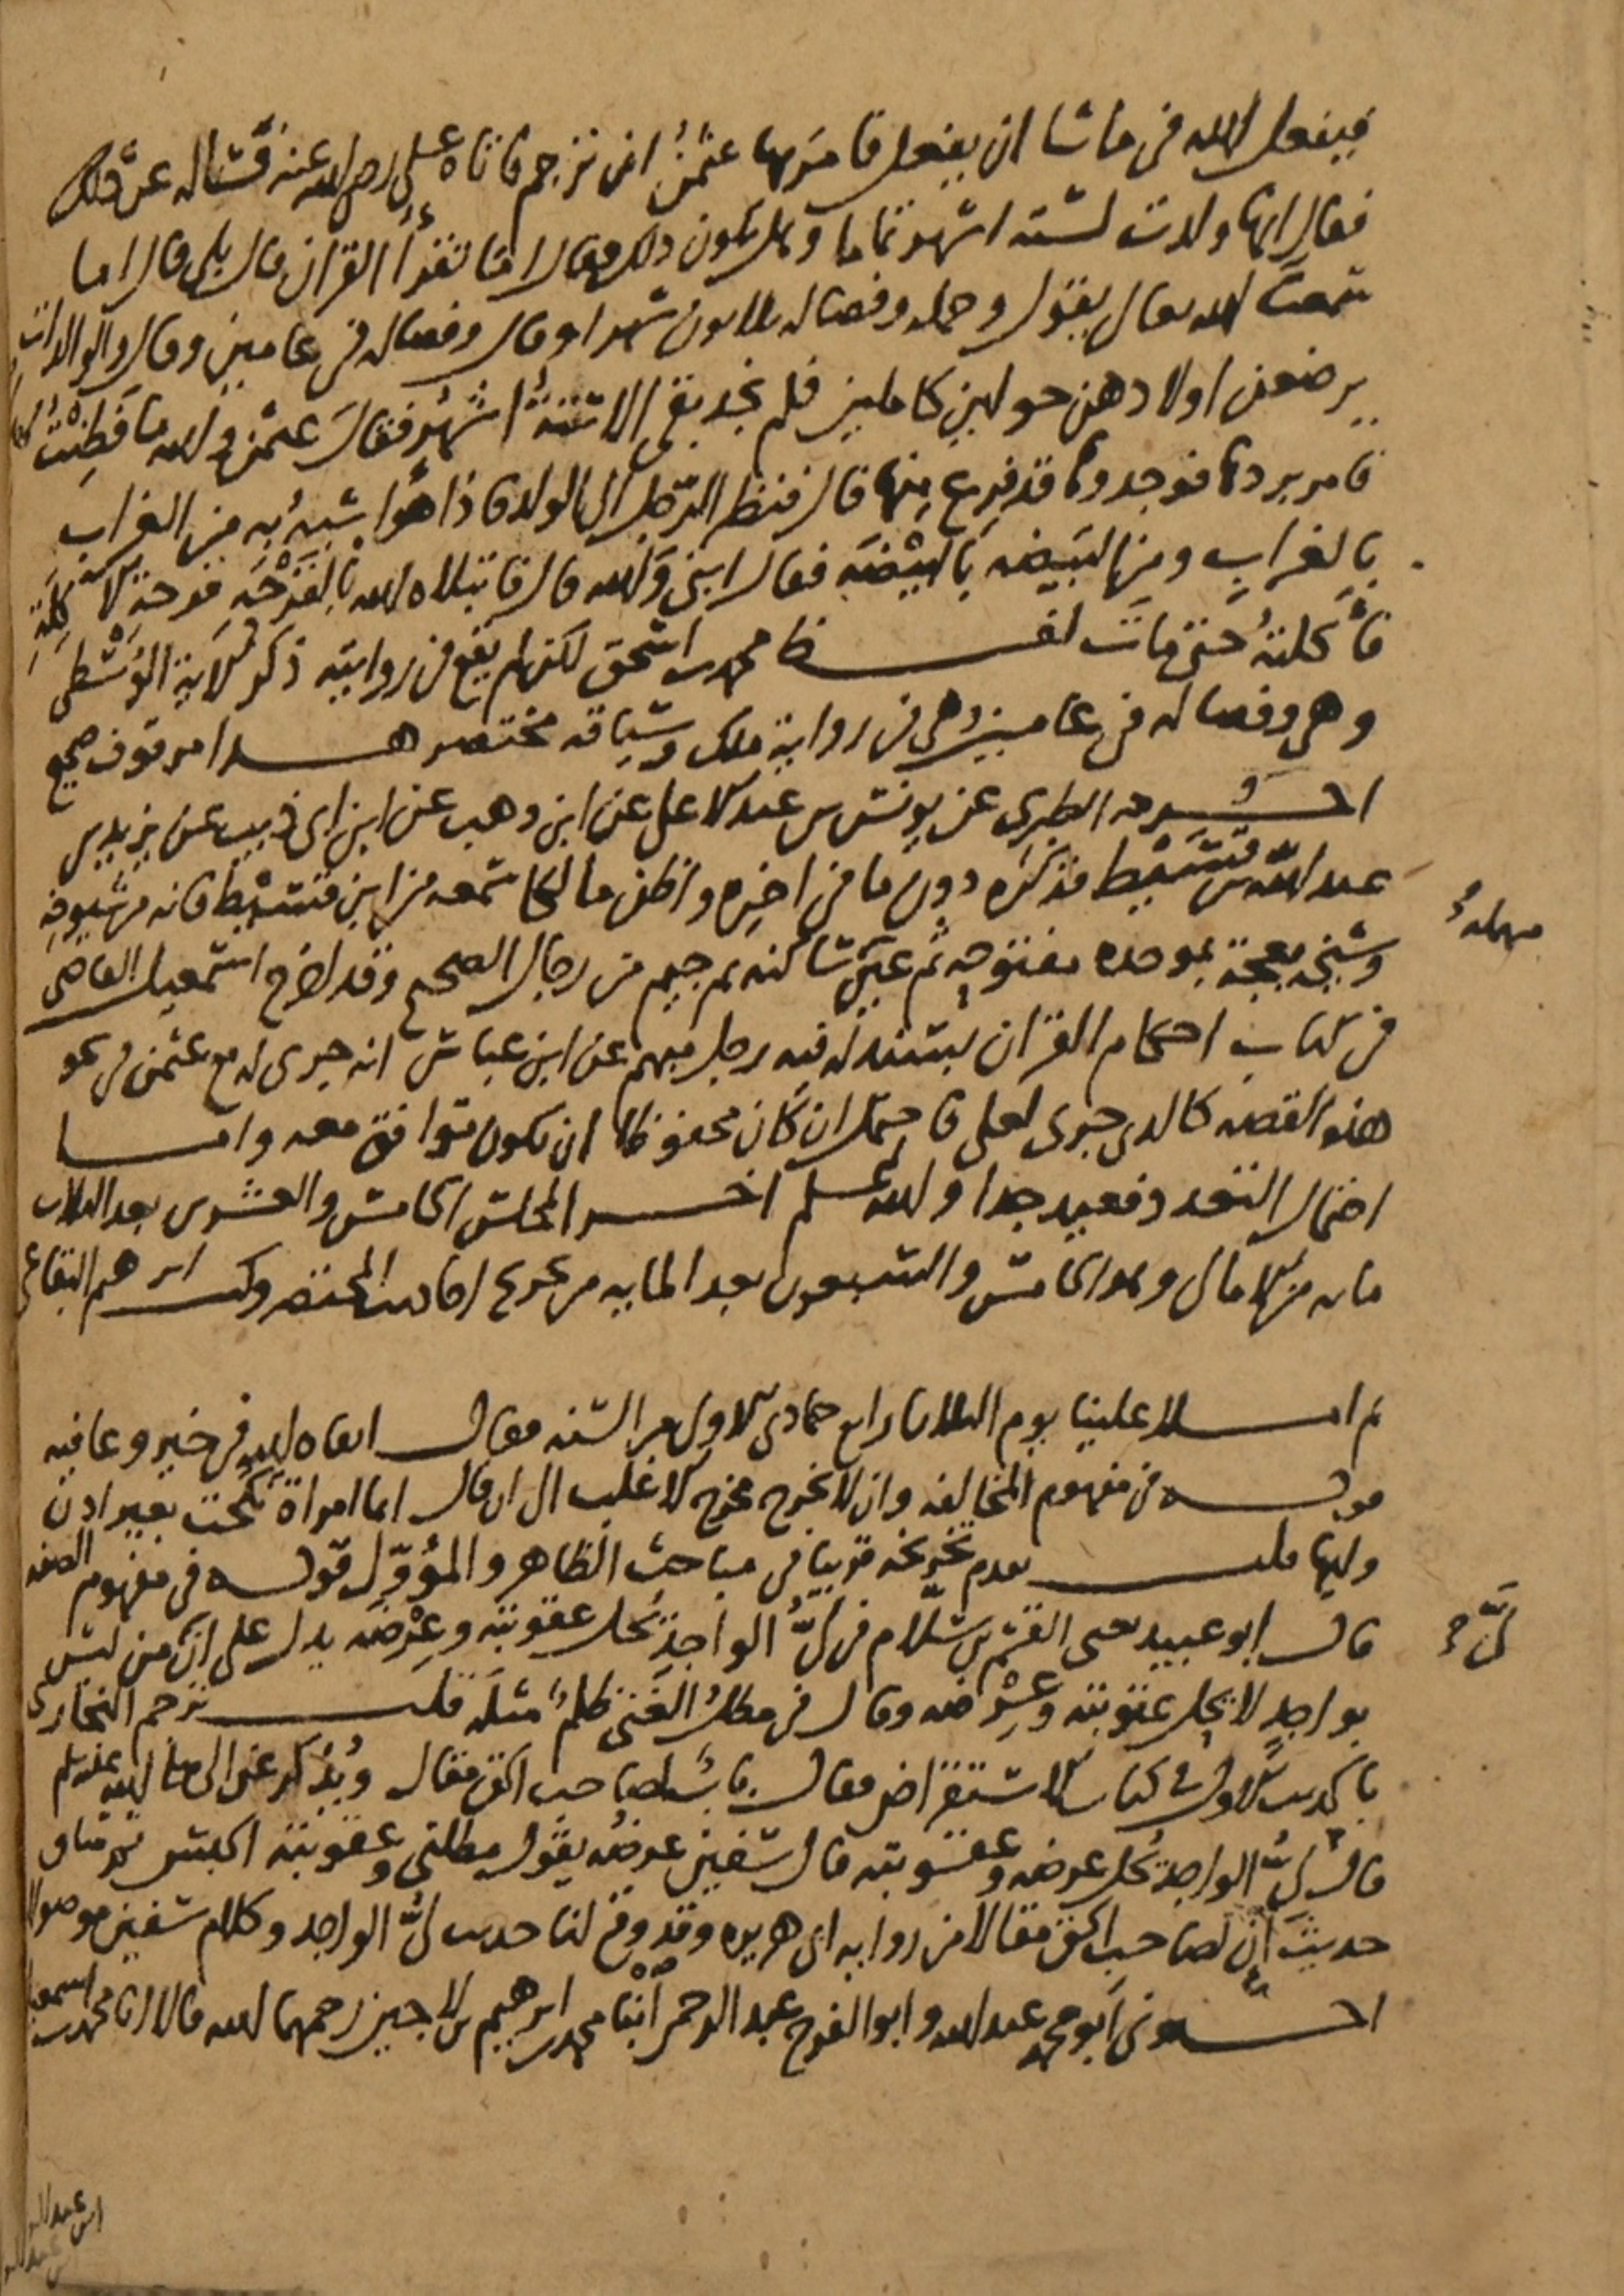 فيفعل الله في ما شا ان يفعل فامر بها عثمن ان ترجم فاتاه على رضى الله عنه فساله عن ذلك
فقال انها ولدت لستة اشهر تماما وهل يكون ذلك فقال اما تقرأ القران قال بلى قال اما
سمعت الله تعالى يقول وحمله وفصاله ثلاثون شهرا وقال وفصاله في عامين وقال والوالدات
يرضعن اولادهن حولين كاملين فلم نجد بقي الا ستة اشهر فقال عثمن والله ما فطنت لهذا
فامر بردها فوجدوها قد فرغ منها قال فنظر الرجل الى الولد فاذا هو اشبه به من الغراب
بالغراب ومن البيضه بالبيضه فقال ابني والله قال فابتلاه الله بالقرحة قرحة الاكلة
فأكلته حتى مات لفظ محمد بن اسحق لكن لم يقع في روايته ذكر الاية الوسطى
وهي وفصاله في عامين وهي في رواية ملك وسياقه مختصر هذا موقوف صحيح
اخرجه الطبري عن يونس بن عبد الاعلى عن ابن وهب عن ابن ابي ذيب عن يزيد بن
عبد الله بن قسيط فذكره دون ما في اخره واظن مالكا سمعه من ابن قسيط فانه من شيوخه
مهملة
وشيخه بعجة بموحده مفتوحه ثم عين ساكنه ثم جيم من رجال الصحيح وقد اخرج اسمعيل القاضي
في كتاب احكام القران بسند له فيه رجل مبهم عن ابن عباس انه جرى له مع عثمن في نحو
هذه القصه كالذي جرى لعلي فاحتمل ان كان محفوظا ان يكون توافق معه واما
احتمال التعدد فبعيد جدا والله اعلم اخر المجلس الخامس والعشرين بعد الثلاث
مايه من الامالي وهو الخامس والتسعون بعد المايه من تخريج احاديث المختصر وكتب ابرهيم البقاعي
ثم املا علينا يوم الثلاثا رابع جمادى الاول من السنه فقال ابقاه الله في خير وعافيه
قوله في مفهوم المخالفه وان لا يخرج مخرج الاغلب الى ان قال ايما امراة نكحت بغير اذن
وليها قلت تقدم تخريجه قريبا في مباحث الظاهر والمؤوّل قوله في مفهوم الصفه
قال ابو عبيد يعني القسم بن سلّام في ليّ الواجد يحل عقوبته وعِرْضه يدل على انّ من ليس
ليّ
بواجدٍ لا يحل عقوبته وعرضه وقال في مطل الغني ظلم مثله قلت ترجم البخاري
بالحديث الاول في كتاب الاستقراض فقال باب لصاحب الحق مقال ويُذكر عن النبي صلى الله عليه وسلم
قال ليّ الواجد يُحل عرضه وعقوبته قال سفين عرضه يقول مطلني وعقوبته الحبس ثم ساق
حديث ان لصاحب الحق مقالا من روايه ابي هريره وقد وقع لنا حديث ليّ الواجد وكلام سفين موصولا
اخبرني ابو محمد عبد الله وابو الفرج عبد الرحمن ابنا محمد بن ابرهيم بن لاجين رحمهما الله قالا انا محمد بن اسمعيل